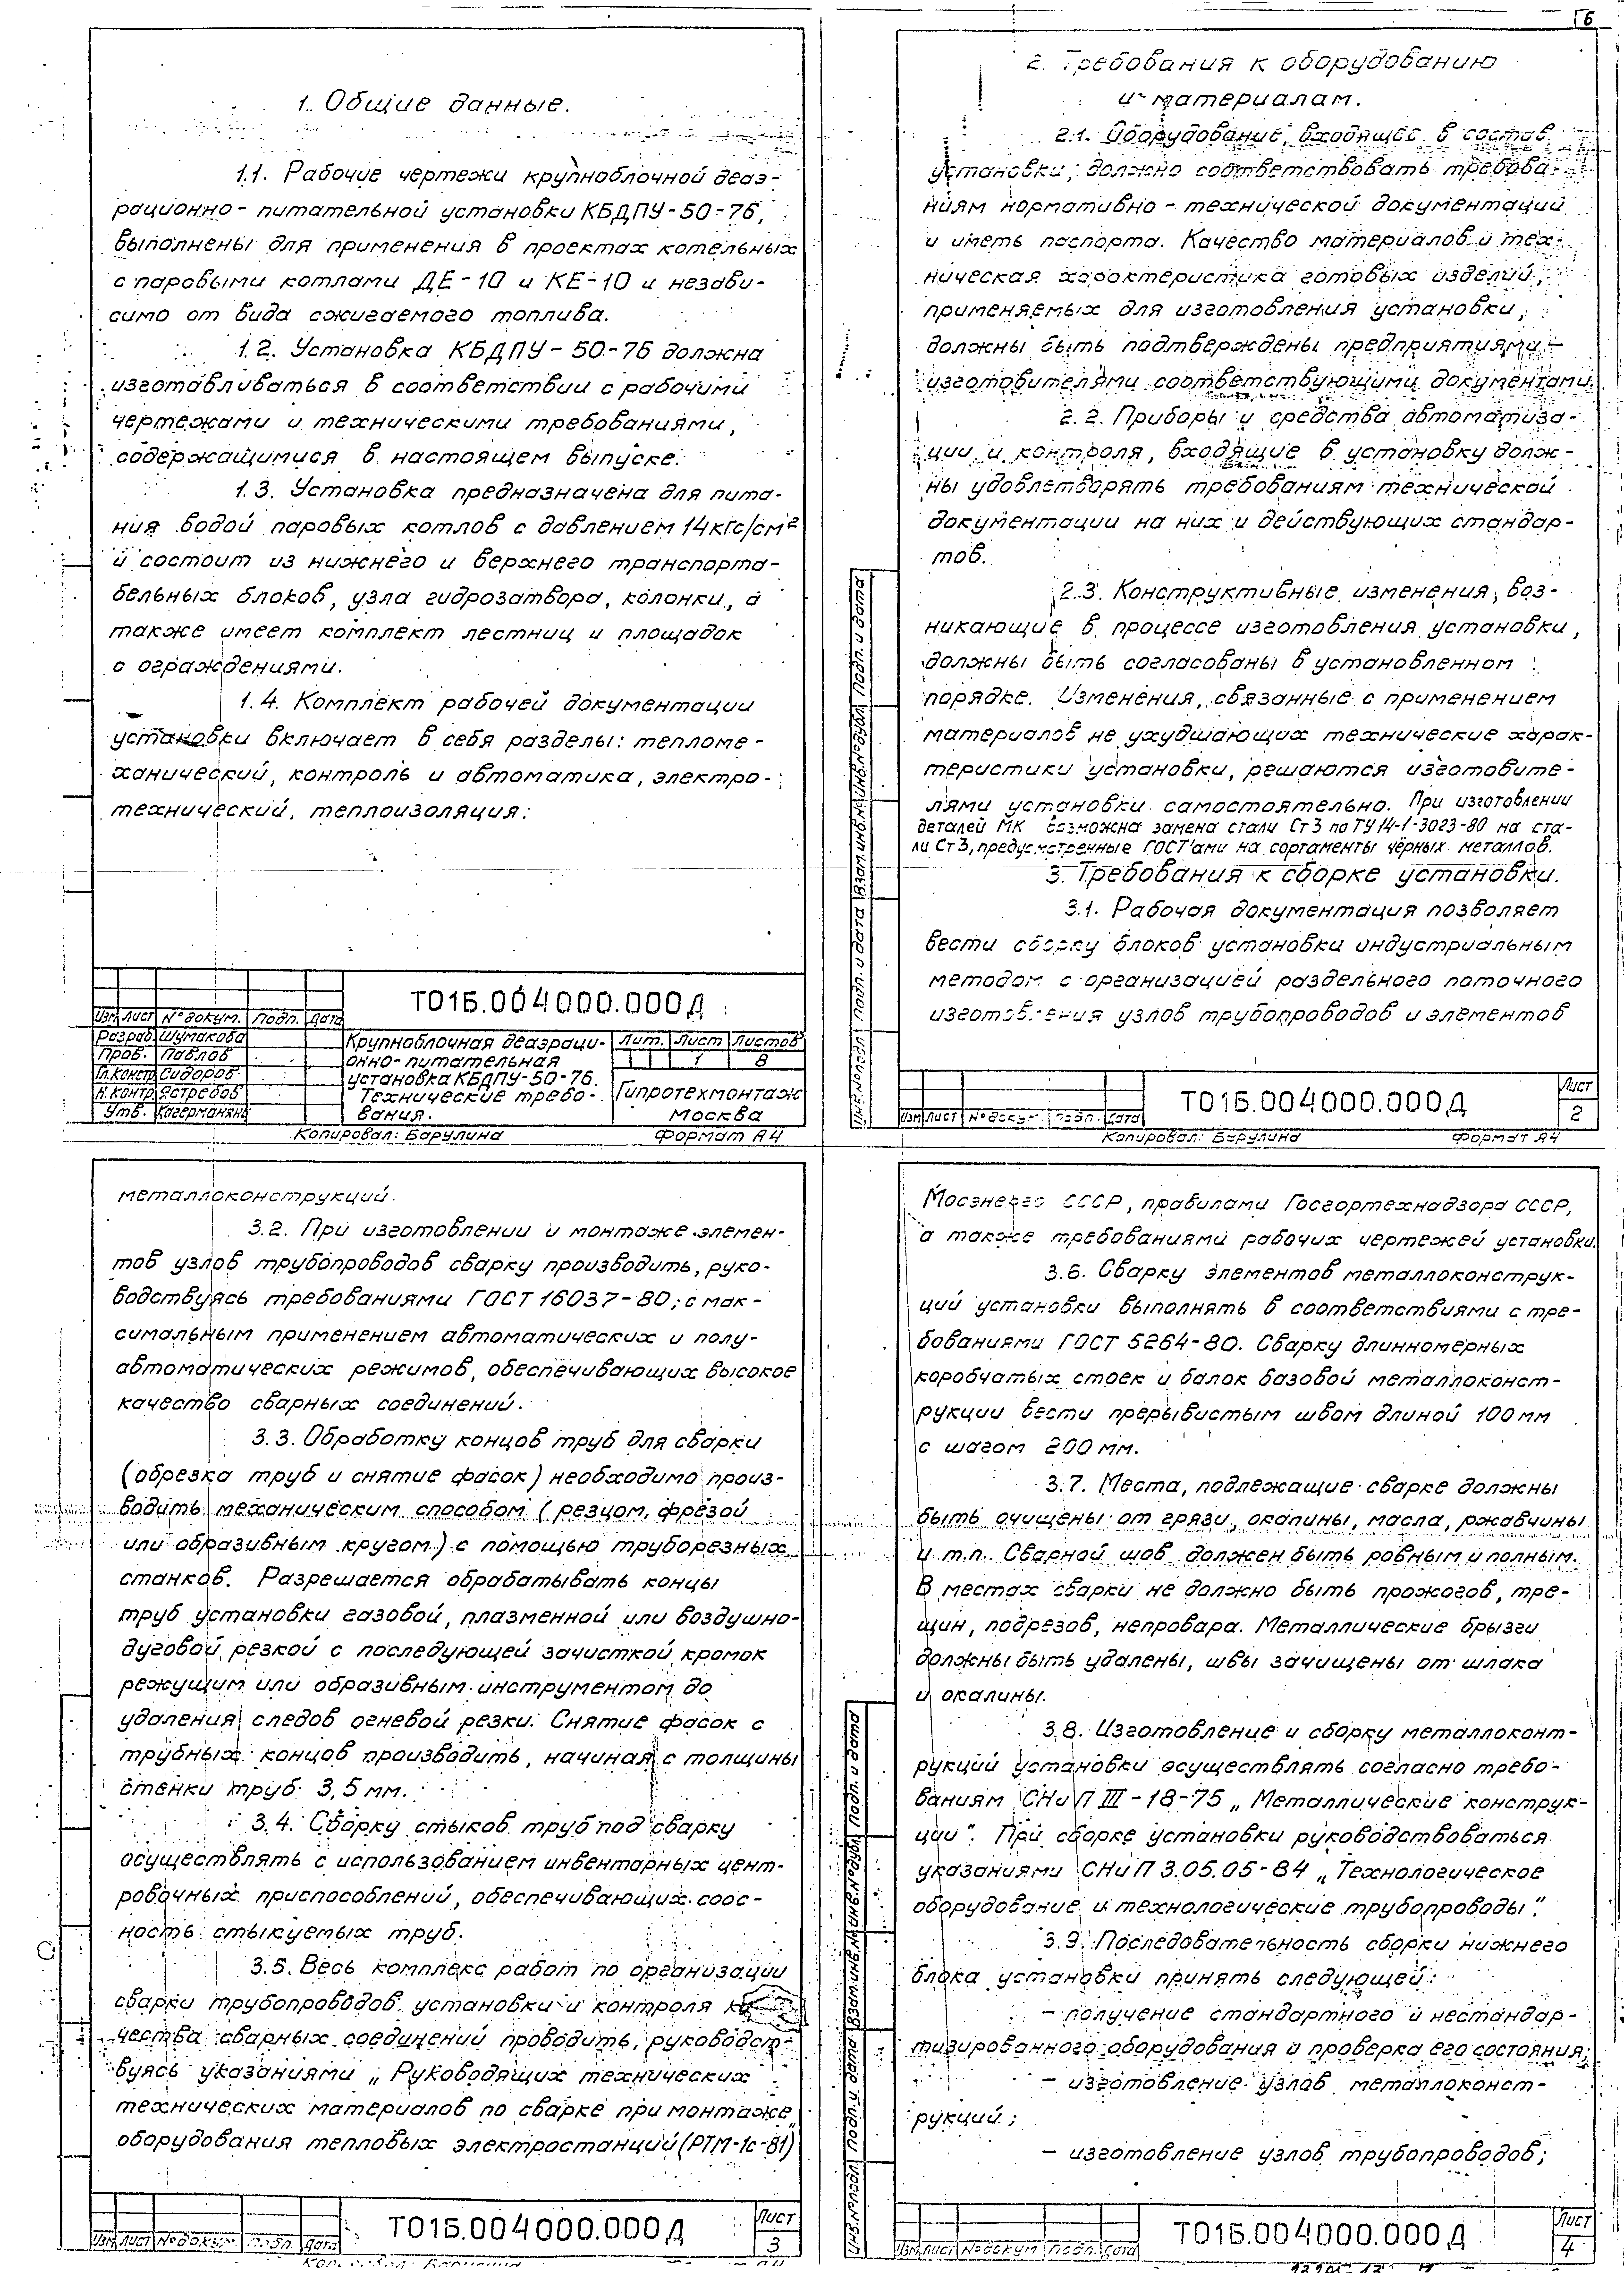 1. Общие данные.
1.1. Рабочие чертежи крупноблочной деаэ-
рационно-питательной установки КБДПУ-50-76,
выполнены для применения в проектах котельных
с паровыми котлами ДЕ-10 и КЕ-10 и незави-
симо от вида сжигаемого топлива.
1.2. Установка КБДПУ-50-76 должна
изготавливаться в соответствии с рабочими
чертежами и техническими требованиями,
содержащимися в настоящем выпуске.
1.3. Установка предназначена для пита-
ния водой паровых котлов с давлением 14кгс/см²
и состоит из нижнего и верхнего транспорта-
бельных блоков, узла гидрозатвора, колонки, а
также имеет комплект лестниц и площадок
с ограждениями.
1.4. Комплект рабочей документации
установки включает в себя разделы: тепломе-
ханический, контроль и автоматика, электро-
технический, теплоизоляция.
Т01Б.004000.000Д
Изм Лист № докум. Подп. Дата
Разраб. Шумакова
Пров. Павлов
Гл.констр. Сидоров
Н.контр. Ястребов
Утв.
Крупноблочная деаэраци-
онно-питательная
установка КБДПУ-50-76.
Технические требо-
вания.
Лит. Лист Листов
1 8
Гипротехмонтаж
Москва
Копировал: Барулина Формат А4
6
2. Требования к оборудованию
и материалам.
2.1. Оборудование, входящее в состав
установки, должно соответствовать требова-
ниям нормативно-технической документации
и иметь паспорта. Качество материалов и тех-
ническая характеристика готовых изделий,
применяемых для изготовления установки,
должны быть подтверждены предприятиями-
изготовителями соответствующими документами.
2.2. Приборы и средства автоматиза-
ции и контроля, входящие в установку долж-
ны удовлетворять требованиям технической
документации на них и действующих стандар-
тов.
2.3. Конструктивные изменения, воз-
никающие в процессе изготовления установки,
должны быть согласованы в установленном
порядке. Изменения, связанные с применением
материалов не ухудшающих технические харак-
теристики установки, решаются изготовите-
лями установки самостоятельно. При изготовлении
деталей МК возможна замена стали Ст3 по ТУ14-1-3023-80 на ста-
ли Ст3, предусмотренные ГОСТ'ами на сортаменты чёрных металлов.
3. Требования к сборке установки.
3.1. Рабочая документация позволяет
вести сборку блоков установки индустриальным
методом с организацией раздельного поточного
изготовления узлов трубопроводов и элементов
Инв.№подл. Подп. и дата Взам.инв.№ Инв.№дубл. Подп. и дата
Изм Лист № докум. Подп. Дата
Т01Б.004000.000Д
Лист
2
Копировал: Барулина Формат А4
металлоконструкций.
3.2. При изготовлении и монтаже элемен-
тов узлов трубопроводов сварку производить, руко-
водствуясь требованиями ГОСТ 16037-80; с мак-
симальным применением автоматических и полу-
автоматических режимов, обеспечивающих высокое
качество сварных соединений.
3.3. Обработку концов труб для сварки
(обрезка труб и снятие фасок) необходимо произ-
водить механическим способом (резцом, фрезой
или образивным кругом) с помощью труборезных
станков. Разрешается обрабатывать концы
труб установки газовой, плазменной или воздушно-
дуговой резкой с последующей зачисткой кромок
режущим или образивным инструментом до
удаления следов огневой резки. Снятие фасок с
трубных концов производить, начиная с толщины
стенки труб 3,5 мм.
3.4. Сборку стыков труб под сварку
осуществлять с использованием инвентарных цент-
ровочных приспособлений, обеспечивающих соос-
ность стыкуемых труб.
3.5. Весь комплекс работ по организации
сварки трубопроводов установки и контроля ка-
чества сварных соединений проводить, руководст-
вуясь указаниями „Руководящих технических
технических материалов по сварке при монтаже
оборудования тепловых электростанций (РТМ-1с-81)
Изм Лист № докум. Подп. Дата
Т01Б.004000.000Д
Лист
3
Мосэнерго СССР, правилами Госгортехнадзора СССР,
а также требованиями рабочих чертежей установки.
3.6. Сварку элементов металлоконструк-
ций установки выполнять в соответствиями с тре-
бованиями ГОСТ 5264-80. Сварку длинномерных
коробчатых стоек и балок базовой металлоконст-
рукции вести прерывистым швом длиной 100 мм
с шагом 200 мм.
3.7. Места, подлежащие сварке должны
быть очищены от грязи, окалины, масла, ржавчины
и т.п. Сварной шов должен быть ровным и полным.
В местах сварки не должно быть прожогов, тре-
щин, подрезов, непровара. Металлические брызги
должны быть удалены, швы зачищены от шлака
и окалины.
3.8. Изготовление и сборку металлоконт-
рукций установки осуществлять согласно требо-
ваниям СНиП III-18-75 „Металлические конструк-
ции". При сборке установки руководствоваться
указаниями СНиП 3.05.05-84 „Технологическое
оборудование и технологические трубопроводы".
3.9. Последовательность сборки нижнего
блока установки принять следующей:
- получение стандартного и нестандар-
тизированного оборудования и проверка его состояния;
- изготовление узлов металлоконст-
рукций;
- изготовление узлов трубопроводов;
Инв.№подл. Подп. и дата Взам.инв.№ Инв.№дубл. Подп. и дата
Изм Лист № докум Подп. Дата
Т01Б.004000.000Д
Лист
4